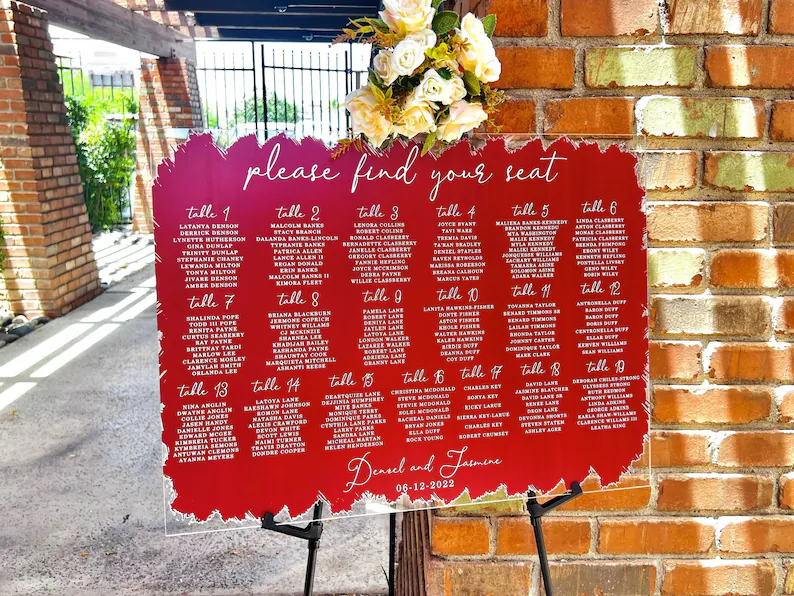 please find your seat
table 1
LATANYA DENSON
DERRICK DENSON
LYNETTE HUTHERSON
GINA DUNLAP
TRINITY DUNLAP
STEPHANIE CHANEY
LEWANDA MILTON
TONYA MILTON
JIVARE DENSON
AMBER DENSON
table 2
MALCOLM BANKS
STACY BRANCH
DALANDA BANKS-LINCOLN
TYPHANIE BANKS
PATRICA ALLEN
LANCE ALLEN II
REGAN DONALD
ERIN BANKS
MALCOLM BANKS II
KIMORA FLEET
table 3
LENORA COLLINS
ROBERT COLINS
RONALD CLASBERRY
BERNADETTE CLASBERRY
JANELLE CLASBERRY
GREGORY CLASBERRY
FANNIE HEFLING
JOYCE MCCRIMSON
DEBRA PAYNE
WILLIE CLASBERRY
table 4
JOYCE EVANT
TAVI WARE
TREMIA DAVIS
TARAN BRADLEY
DENZEL STAPLES
RAVEN REYNOLDS
MARISSA ROBERSON
BREANA CALHOUN
MARCUS YATES
table 5
MALIERA BANKS-KENNEDY
BRANDON KENNEDY
MYA WASHINGTON
MALIK KENNEDY
MYLA KENNEDY
MALIK ELDRIDGE
TAMARA ASINE
SOLOMON ASINE
ADARA WALKER
table 6
LINDA CLASBERRY
ANTON CLASBERRY
MONAE CLASBERRY
PATRICIA CLASBERRY
BRENDA FRIMPONG
EBONY WILEY
KENNETH HEFLING
FONTELLA LIVELY
GENO WILEY
ROBIN WILEY
table 7
SHALINDA POPE
TODD III POPE
RENITA PAYNE
CURTUS SEABERRY
RAY PAYNE
BRITTNAY TARDI
MARLOW LEE
CLARENCE MOSLEY
JAMYLAH SMITH
ORLANDA LEE
table 8
BRIANA BLACKBURN
JERMONE COPRICH
WHITNEY WILLIAMS
CJ MCKENZIE
SHARNEA LEE
KHADIJAH BAILEY
RASHANDA PAYNE
SHAUNTAY COOK
MARQUIETA MITCHELL
ASHANTI REESE
table 9
PAMELA LANE
ROBERT LANE
DENIYA LANE
JAYLEN LANE
LATOYA LANE
LONDON WALKER
LAZAREZ WALKER
ROBERT LANE
ADRIENA LANE
GRANNY LANE
table 10
LANITA HAWKINS-FISHER
DONTE FISHER
ASTON FISHER
KHOLE FISHER
WALTER HAWKINS
KALEB HAWKINS
BIRDIE DUFF
DEANNA DUFF
COY DUFF
table 11
TOVANNA TAYLOR
BERNARD TIMMONS
BERNARD TIMMONS
LAILAH TIMMONS
RHONDA TAYLOR
JOHNNY CARTER
DOMINIQUE TAYLOR
MARK CLARK
table 12
ANTRONELLA DUFF
BARON DUFF
BARON DUFF
DORIS DUFF
CENTRONELLA DUFF
ELLAIR DUFF
KERVEN WILLIAMS
SEAN WILLIAMS
table 13
NINA ANGLIN
DWAYNE ANGLIN
COLLIE JONES
JASEN HANDY
DANIELLE JONES
EDWARD MCGEE
KIMBREIA TUCKER
KYMBREIA SEMONS
ANTWAN CLEMONS
AYANNA MEYERS
table 14
LATOYA LANE
RAESHAWN JOHNSON
ROMON LANE
NATASHA DAVIS
ALEXIS CRAWFORD
DEVON WHITE
SCOTT LEWIS
NAIMI TURNER
TRAVIS DRAYTON
DONDRE COOPER
table 15
DEARTQUIZE LANE
DEJJINIA HUMPHREY
MITE BANKS
MONIQUE TERRY
DOMINIQUE PARKS
CYNTHIA LANE PARKS
LARRY PARKS
SANDRA LANE
MICHEAL MARTAN
HELEN HENDERSON
table 16
CHRISTINA MCDONALD
STEVIE MCDONALD
STEVIE MCDONALD
SOLEI MCDONALD
RACHEAL DANIELS
BRYAN JONES
ELLA DUFF
ROCK YOUNG
table 17
CHARLES KEY
SONYA KEY
RICKY LARUE
SIERRA KEY-LARUE
CHARLES KEY
ROBERT CUMSEY
table 18
DAVID LANE
JASMINE BLATCHER
DAVID LANE SR
RENEE LANE
DEON LANE
DEVONNA SPROITS
STEVEN STATES
ASHLEY AGER
table 19
DEBORAH CHILES-STRONG
ULYSSESS STRONG
RUTH REDMON
ANTHONY WILLIAMS
LINDA ADKINS
GEORGE ADKINS
KARLIA SHAW-WILLIAMS
CLARENCE WILLIAMS II
LEATHA KING
Denzel and Jasmine
06-12-2022